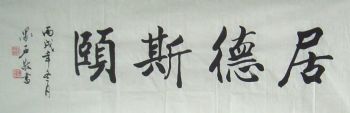 居德斯頤
丙戌年冬月